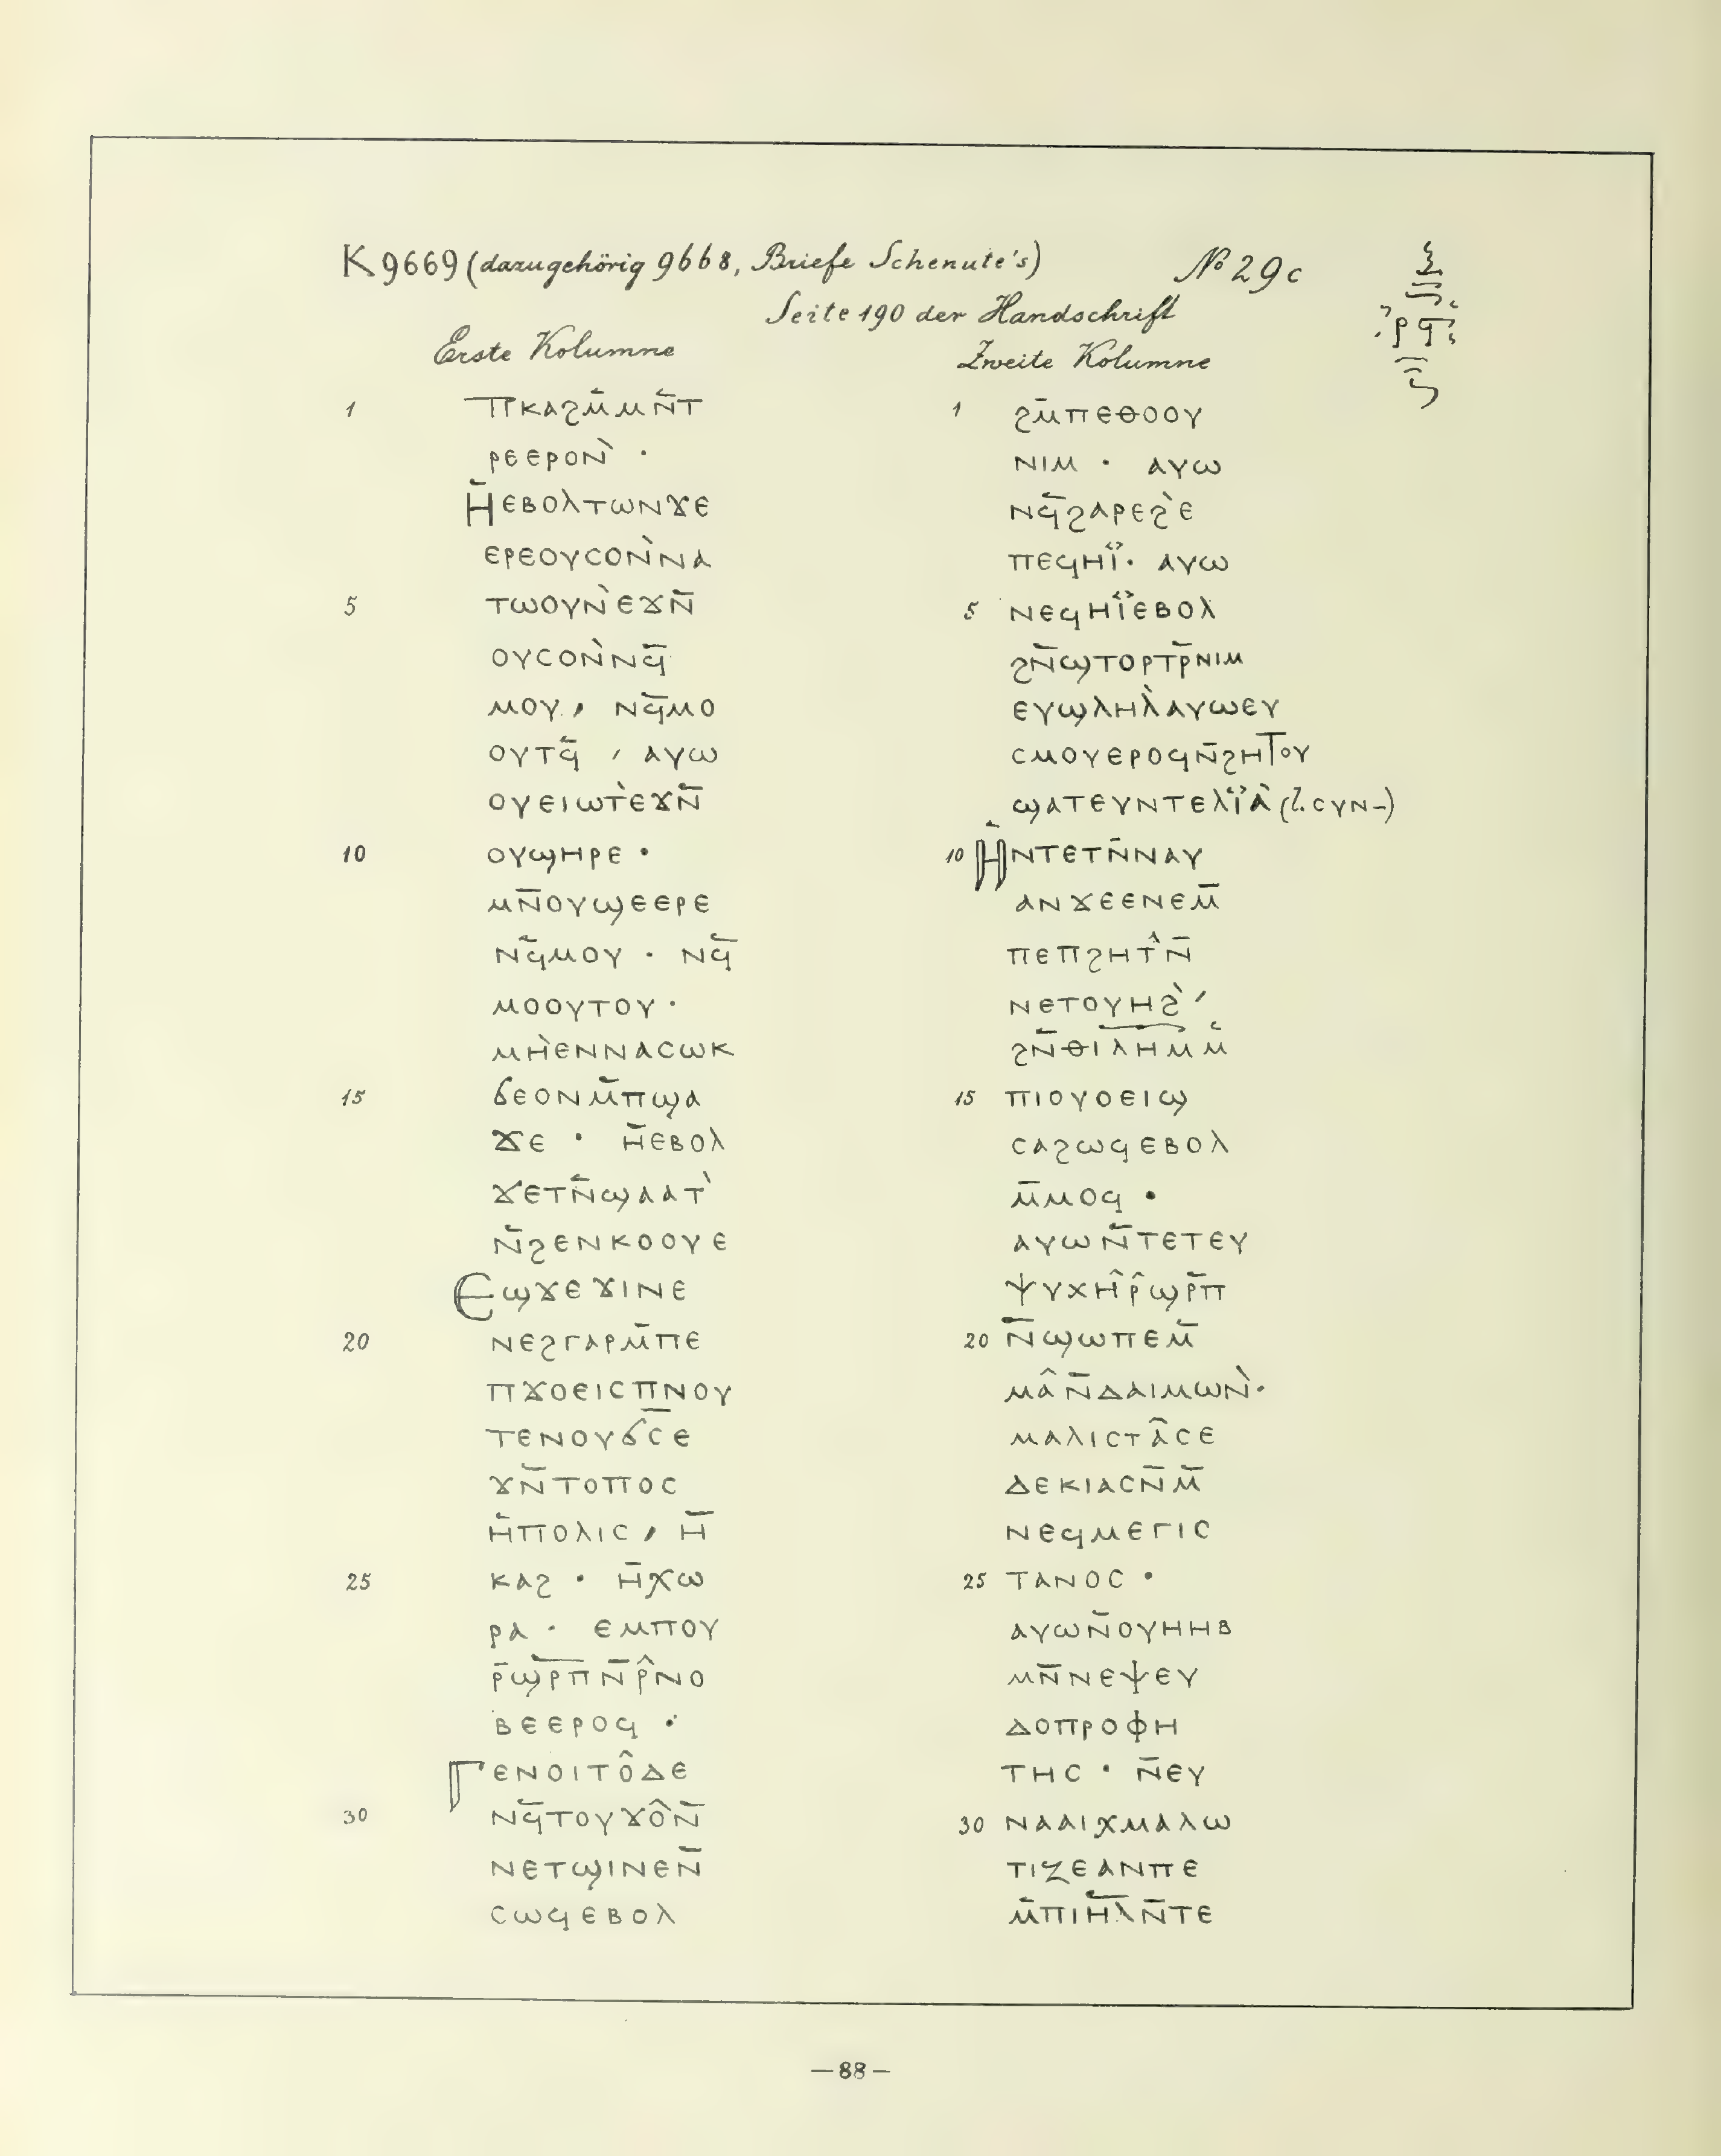 K 9669 (dazugehörig 9668, Briefe Schenute's) No 29c
Seite 190 der Handschrift
ⲣϥ
Erste Kolumne
1 ⲡⲕⲁϩⲙ̄ⲙⲛ̄ⲧ
ⲣⲉⲉⲣⲟⲛ̀ ·
ⲏ̄ⲉⲃⲟⲗⲧⲱⲛϫⲉ
ⲉⲣⲉⲟⲩⲥⲟⲛ̀ⲛⲁ
5 ⲧⲱⲟⲩⲛ̀ⲉϫⲛ̄
ⲟⲩⲥⲟⲛ̀ⲛϥ̄
ⲙⲟⲩ, ⲛϥ̄ⲙⲟ
ⲟⲩⲧϥ̄ , ⲁⲩⲱ
ⲟⲩⲉⲓⲱⲧ̀ⲉϫⲛ̄
10 ⲟⲩϣⲏⲣⲉ ·
ⲙⲛ̄ⲟⲩϣⲉⲉⲣⲉ
ⲛϥ̄ⲙⲟⲩ · ⲛϥ̄
ⲙⲟⲟⲩⲧⲟⲩ ·
ⲙⲏ̀ⲉⲛⲛⲁⲥⲱⲕ
15 ϭⲉⲟⲛⲙ̄ⲡϣⲁ
ϫⲉ · ⲏ̄ⲉⲃⲟⲗ
ϫⲉⲧⲛ̄ϣⲁⲁⲧ̀
ⲛ̄ϩⲉⲛⲕⲟⲟⲩⲉ
ⲉϣϫⲉϫⲓⲛⲉ
20 ⲛⲉϩⲅⲁⲣⲙ̄ⲡⲉ
ⲡϫⲟⲉⲓⲥⲡⲛⲟⲩ
ⲧⲉⲛⲟⲩϭⲥ̄ⲉ
ϫⲛ̄ⲧⲟⲡⲟⲥ
ⲏ̄ⲡⲟⲗⲓⲥ, ⲏ̄
25 ⲕⲁϩ · ⲏ̄ⲭⲱ
ⲣⲁ · ⲉⲙⲡⲟⲩ
ⲣ̄ϣⲣ̄ⲡⲛ̄ⲣ̂ⲛⲟ
ⲃⲉⲉⲣⲟϥ ·
ⲅⲉⲛⲟⲓⲧⲟ̂ⲇⲉ
30 ⲛϥ̄ⲧⲟⲩϫⲟ̂ⲛ̄
ⲛⲉⲧϣⲓⲛⲉⲛ̄
ⲥⲱϥⲉⲃⲟⲗ
Zweite Kolumne
1 ϩⲙ̄ⲡⲉⲑⲟⲟⲩ
ⲛⲓⲙ · ⲁⲩⲱ
ⲛϥ̄ϩⲁⲣⲉϩ̀ⲉ
ⲡⲉϥⲏⲓ̈· ⲁⲩⲱ
5 ⲛⲉϥⲏⲓ̈ⲉⲃⲟⲗ
ϩⲛ̄ϣⲧⲟⲣⲧⲣ̄ⲛⲓⲙ
ⲉⲩϣⲗⲏⲗ̀ⲁⲩⲱⲉⲩ
ⲥⲙⲟⲩⲉⲣⲟϥⲛ̄ϩⲏⲧⲟⲩ
ϣⲁⲧⲉⲩⲛⲧⲉⲗⲓ̈ⲁ̀ (l. ⲥⲩⲛ-)
10 ⲏ̀ⲛⲧⲉⲧⲛ̄ⲛⲁⲩ
ⲁⲛϫⲉⲉⲛⲉⲙ̄
ⲡⲉⲡϩⲏⲧ̂ⲛ̄
ⲛⲉⲧⲟⲩⲏϩ̀ ,
ϩⲛ̄ⲑⲓⲗⲏⲙ̄ ⲙ̄
15 ⲡⲓⲟⲩⲟⲉⲓϣ
ⲥⲁϩⲱϥⲉⲃⲟⲗ
ⲙ̄ⲙⲟϥ ·
ⲁⲩⲱⲛ̄ⲧⲉⲧⲉⲩ
ⲯⲩⲭⲏ̂ⲣ̂ϣⲣ̄ⲡ
20 ⲛ̄ϣⲱⲡⲉⲙ̄
ⲙⲁ̂ⲛ̄ⲇⲁⲓⲙⲱⲛ̀·
ⲙⲁⲗⲓⲥⲧⲁ̂ⲥⲉ
ⲇⲉⲕⲓⲁⲥⲛ̄ⲙ̄
ⲛⲉϥⲙⲉⲅⲓⲥ
25 ⲧⲁⲛⲟⲥ ·
ⲁⲩⲱⲛ̄ⲟⲩⲏⲏⲃ
ⲙⲛ̄ⲛⲉⲯⲉⲩ
ⲇⲟⲡⲣⲟⲫⲏ
ⲧⲏⲥ · ⲛ̄ⲉⲩ
30 ⲛⲁⲁⲓⲭⲙⲁⲗⲱ
ⲧⲓⲍⲉⲁⲛⲡⲉ
ⲙ̄ⲡⲓⲏ̄ⲗ̄ⲛ̄ⲧⲉ
—88—